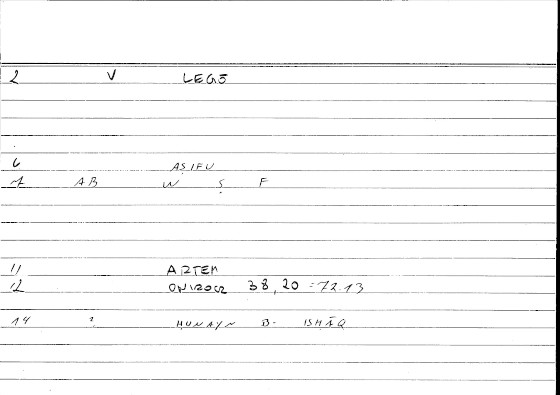 2 V LEGŌ
6 AṢIFU
7 AB W Ṣ F
11 ARTEM
12 ONIROCR 38,20 = 72.13
14 ? ḤUNAYN B. ISḤĀQ